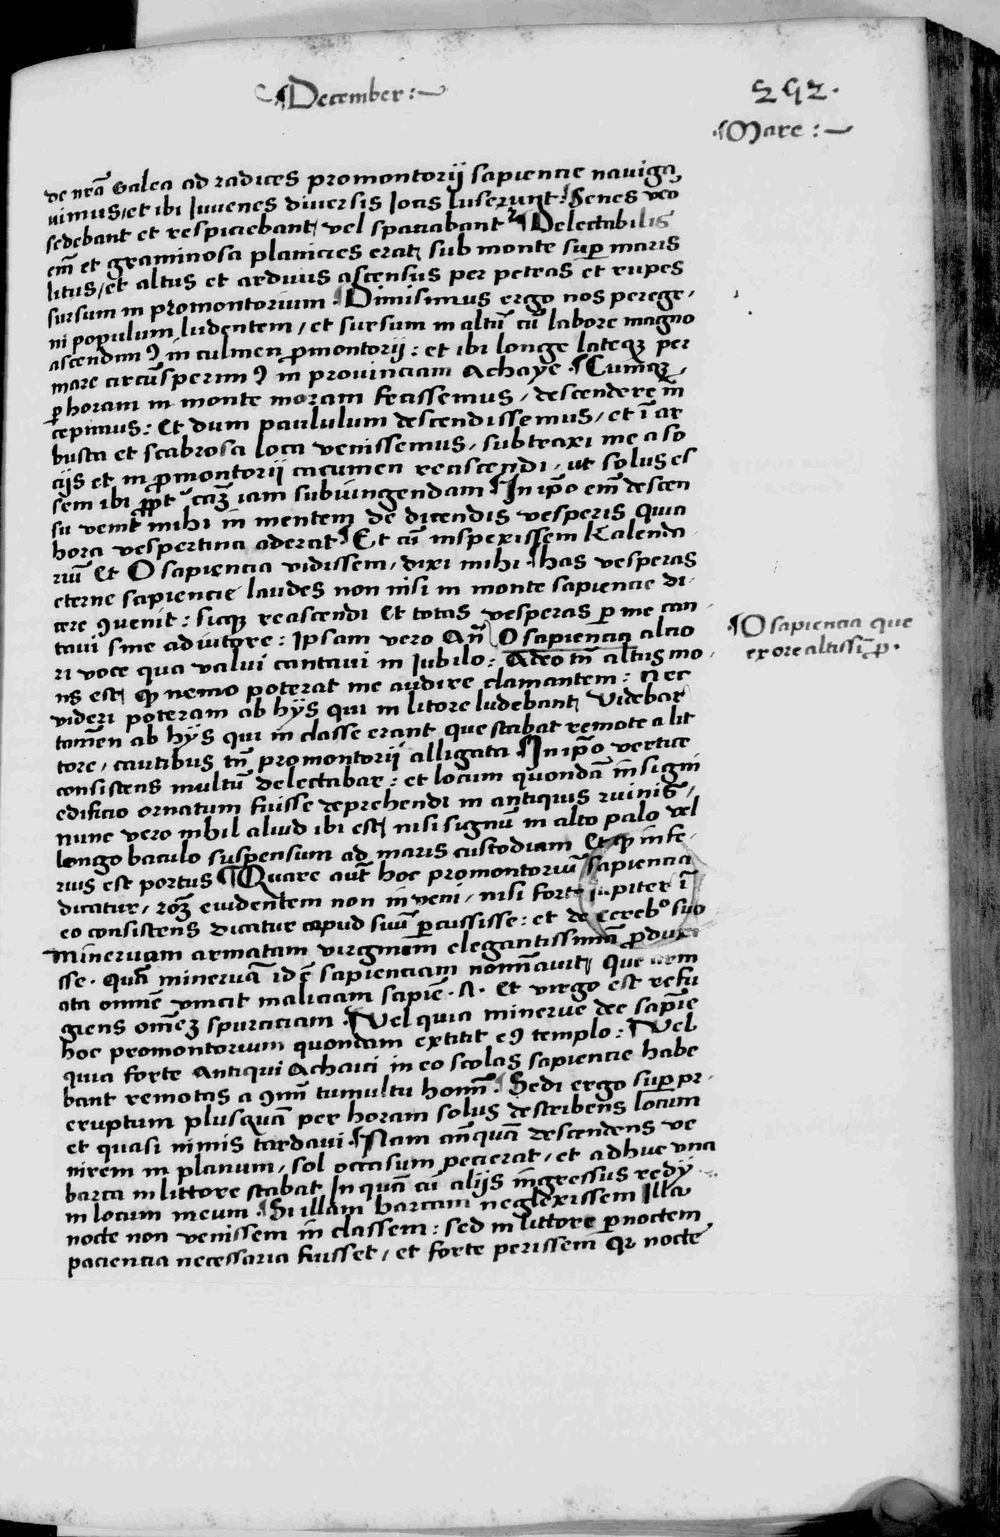 ¶December:~
252.
¶Mare:~
de nrã Galea ad radices promontorij sapiencie naviga
uimus, et ibi Iuvenes diversis Iocis luserunt. Senes vero
sedebant et respiciebant, vel spaciabantr ¶Delectabilis
em̃ et graminosa planicies erat, sub monte sup̱ maris
litus, et altus et arduus ascensus per petras et rupes
sursum in promontorium. ¶Dimisimus ergo nos peregr̃
ni populum ludentem, et sursum in altũ cũ labore magno
ascendimꝰ in culmen ꝓmontorij: et ibi longe lateqꝫ per
mare circũsperimꝰ in provinciam Achaye. ¶Cumqꝫ
p̱ horam in monte moram fecissemus, descendere in
cepimus: Et dum paululum descendissemus, et ĩ ar
busta et scabrosa loca venissemus, subtraxi me a so
cijs et in ꝓmontorij cacumen reascendi, ut solus es
sem ibi ꝓpt̃ cãꝫ iam subiungendam. ¶In ip̃o em̃ descen
su venit mihi in mentem de dicendis vesperis, quia
hora vespertina aderat. ¶Et cũ inspexissem Kalenda
riũ Et O sapiencia vidissem, dixi mihi. ¶has vesperas
eterne sapiencie laudes non nisi in monte sapiencie di
cere ꝯvenit: sicqꝫ reascendi Et totas vesperas p̱ me can
tavi sine adiutore: Ipsam vero Añ O sapiencia alcio
ri voce qua valui cantavi in Iubilo: Adeo tñ altus mo
ns est, qꝫ nemo poterat me audire clamantem: nec
videri poteram ab hijs qui in litore ludebant, Videbar
tamen ab hijs qui in classe erant, que stabat remote a lit
tore, cautibus tñ promontorij alligata. ¶In ip̃o vertice
consistens multũ delectabar: et locum quondã insigni
edificio ornatum fuisse deprehendi in antiquis ruinis,
nunc vero nihil aliud ibi est, nisi signũ in alto palo vel
longo baculo suspensum ad maris custodiam Et qꝫ infe
rius est portus ¶Quare aũt hoc promontoriũ sapiencia
dicatur, rõꝫ euidentem non inveni, nisi forte iupiter ĩ
eo consistens dicatur capud suũ p̱cussisse: et de cerebº suo
Minervam armatam virginem elegantissimã ꝓduxi
sse. quã minervã id ẽ sapienciam nom̃avit, Que arm
ata omnẽ vincit maliciam sapiẽ. A. Et virgo est refu
giens om̃eꝫ spurciciam. ¶Vel quia minerve dee sapie
hoc promontorium quondam extitit eꝰ templo: ¶Vel
quia forte Antiqui Achaici in eo scolas sapiencie habe
bant remotas a ꝯmuni tumultu homñ. ¶Sedi ergo sup̱ pr
eruptum plusquã per horam solus describens locum
et quasi nimis tardavi. ¶Nam añquã descendens ve
nirem in planum, sol occasum pecierat, et adhuc una
barca in littore stabat, In quã cũ alijs ingressus redij
in locum meum. ¶Si illam barcam neglexissem Illa
nocte non venissem in classem: sed in littore p̱noctem
paciencia necessaria fuisset, et forte perissem qꝛ nocte
¶O sapiencia que
ex ore altissĩ p̱.